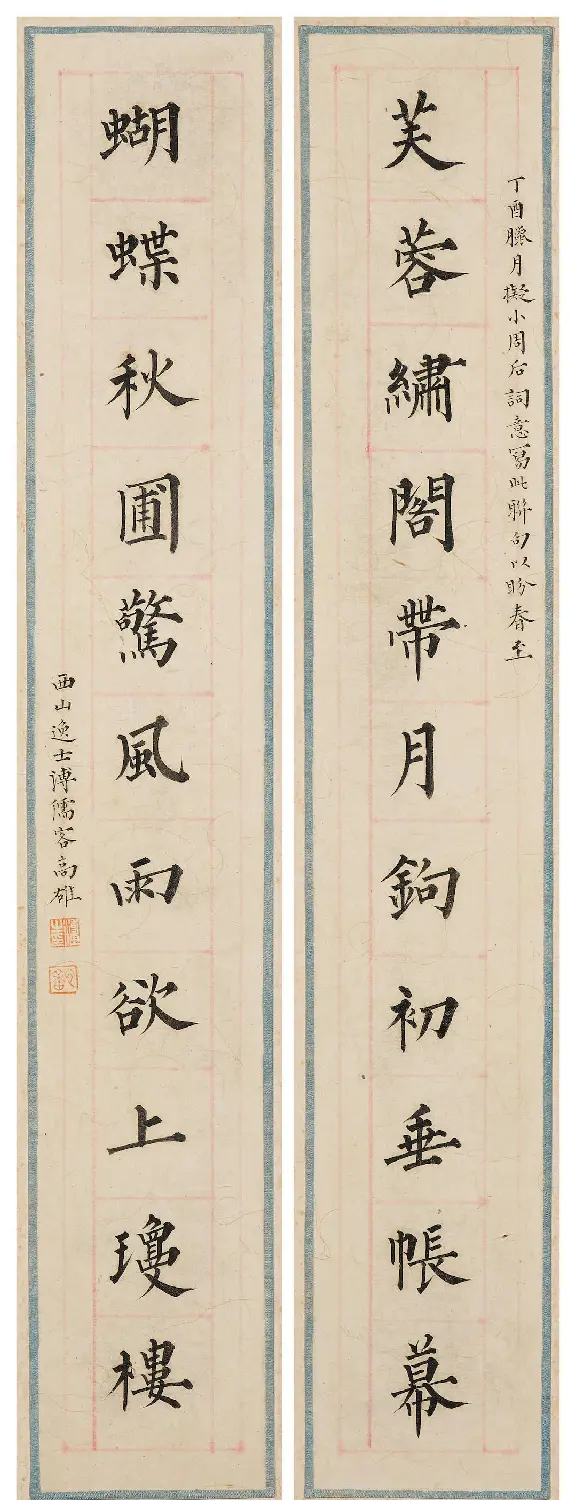 丁酉臘月擬小周后詞意寫此聯句以盼春至
芙蓉繡閣帶月鉤初垂帳幕
蝴蝶秋圃驚風雨欲上瓊樓
西山逸士溥儒客高雄